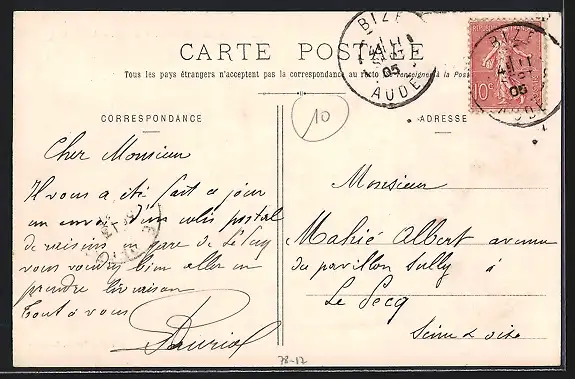 CARTE POSTALE
Tous les pays étrangers n'acceptent pas la correspondance au recto (se renseigner à la Poste)
BIZE
AUDE
05
BIZE
AUDE
05
10c
10
CORRESPONDANCE
ADRESSE
Cher Monsieur
Il vous a été fait ce jour
un envoi d'un colis postal
de raisins en gare de Le Pecq
vous voudrez bien aller en
prendre livraison
Tout à vous
Monsieur
Mahié Albert avenue
du pavillon Sully à
Le Pecq
Seine & Oise
78-12